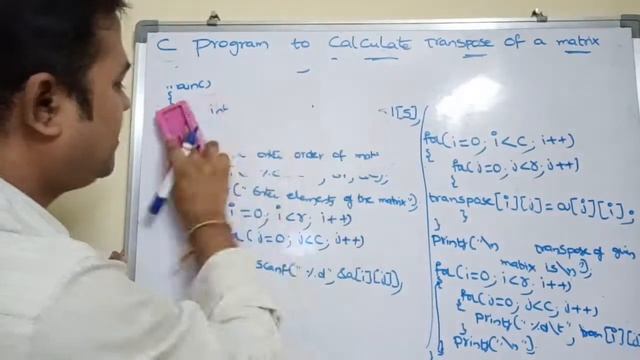 C program to Calculate transpose of a matrix
main()
{
int
l[5],
order of mat
("Enter elements of the matrix");
i=0; i<r; i++)
(j=0; j<c; j++)
scanf("%d", &a[i][j]);
for(i=0; i<c; i++)
{
for(j=0; j<r; j++)
{
transpose[i][j]=a[j][i];
}
}
printf("\n transpose of given
matrix is\n");
for(i=0; i<r; i++)
{
for(j=0; j<c; j++)
{
printf("%d\t", tran[i][
}
printf("\n");